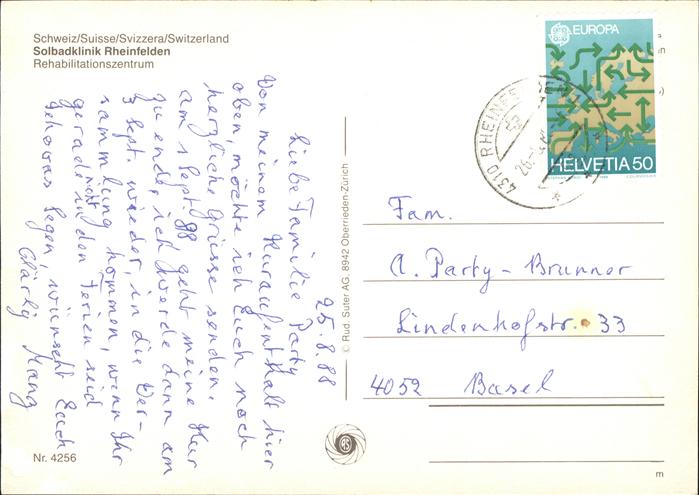 Schweiz/Suisse/Svizzera/Switzerland
Solbadklinik Rheinfelden
Rehabilitationszentrum
25.8.88
Liebe Familie Party
Von meinem Kuraufenthalt hier
oben, möchte ich Euch noch
herzliche Grüsse senden.
am Sept. 88 geht meine Kur
zu ende, ich werde dann am
3 Sept. wieder, in die Ver-
sammlung kommen, wenn Ihr
gerade nicht in den Ferien seid
Jehovas Segen, wünscht Euch
Manz
Nr. 4256
© Rud. Suter AG, 8942 Oberrieden-Zürich
RS
EUROPA
HELVETIA 50
4310 RHEINFELDEN 1
Fam.
A. Party-Brunner
Lindenhofstr. 33
4052 Basel
m